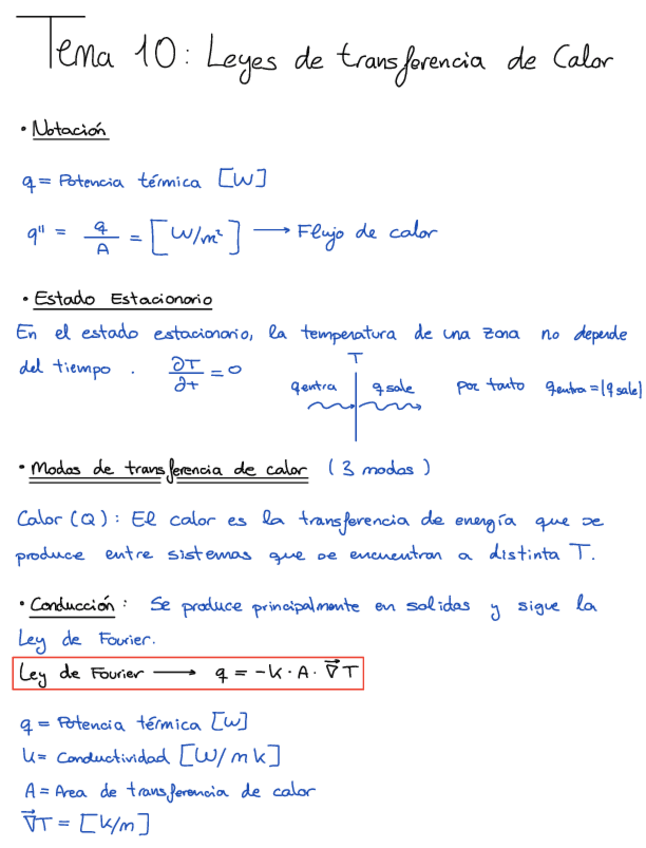 Tema 10: Leyes de transferencia de Calor
• Notación
q = Potencia térmica [W]
q'' = q/A = [W/m²] → Flujo de calor
• Estado Estacionario
En el estado estacionario, la temperatura de una zona no depende
del tiempo. ∂T/∂t = 0
T
qentra qsale por tanto qentra = |qsale|
• Modos de transferencia de calor (3 modos)
Calor (Q): El calor es la transferencia de energía que se
produce entre sistemas que se encuentran a distinta T.
• Conducción: Se produce principalmente en solidos y sigue la
Ley de Fourier.
Ley de Fourier → q = -k · A · ∇⃗T
q = Potencia térmica [W]
k = Conductividad [W/mk]
A = Area de transferencia de calor
∇⃗T = [k/m]